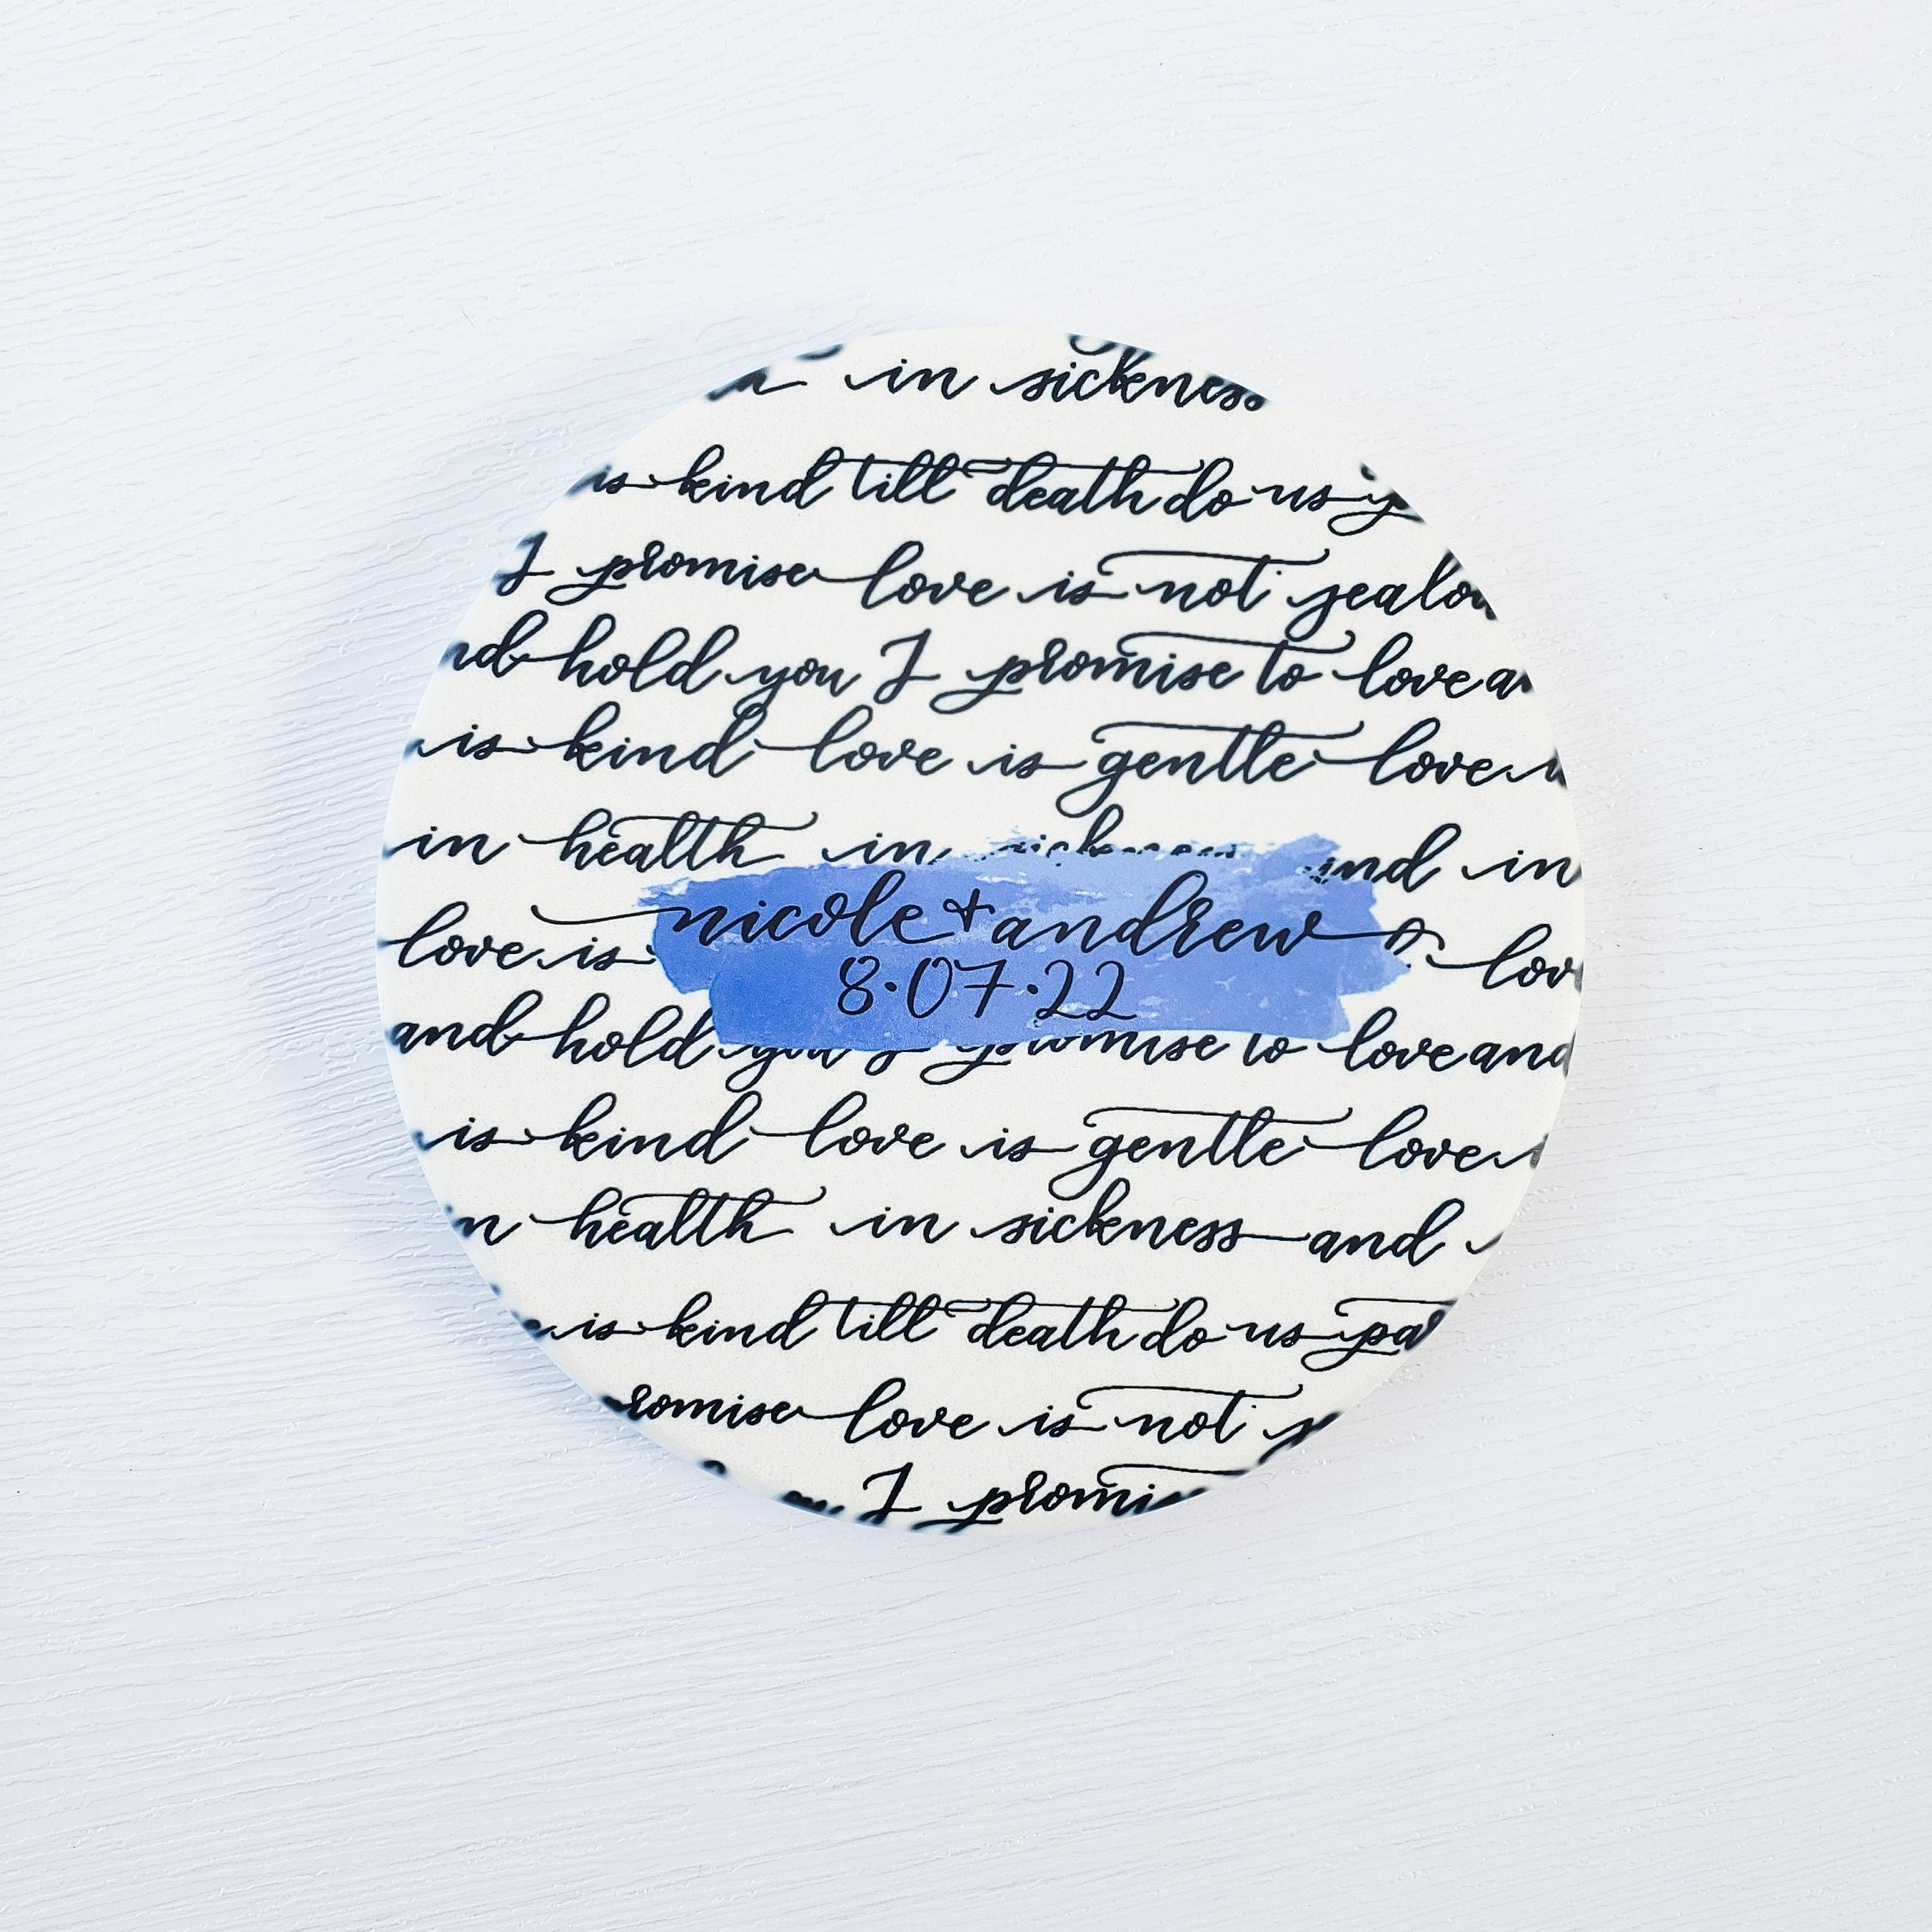 in sickness
is kind till death do us
I promise love is not
hold you I promise to love
is kind love is gentle love
in health in sickness and in
love is
nicole + andrew
8.07.22
and hold you I promise to love and
is kind love is gentle love
health in sickness and
is kind till death do us
love is not
I